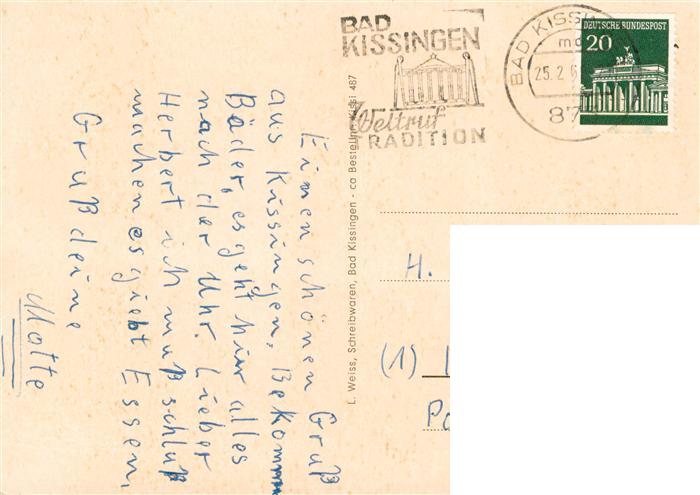 BAD
KISSINGEN
Weltruf
TRADITION
BAD KISSIN
25.2.6
87
DEUTSCHE BUNDESPOST
20
Einen schönen Gruß
aus Kissingen, Bekomm
Bäder, es geht hier alles
nach der Uhr. Lieber
Herbert ich muß schluß
machen es giebt Essen,
Gruß deine
Motte
L. Weiss, Schreibwaren, Bad Kissingen - ca Bestellnr. Kissi 487
H.
(1)